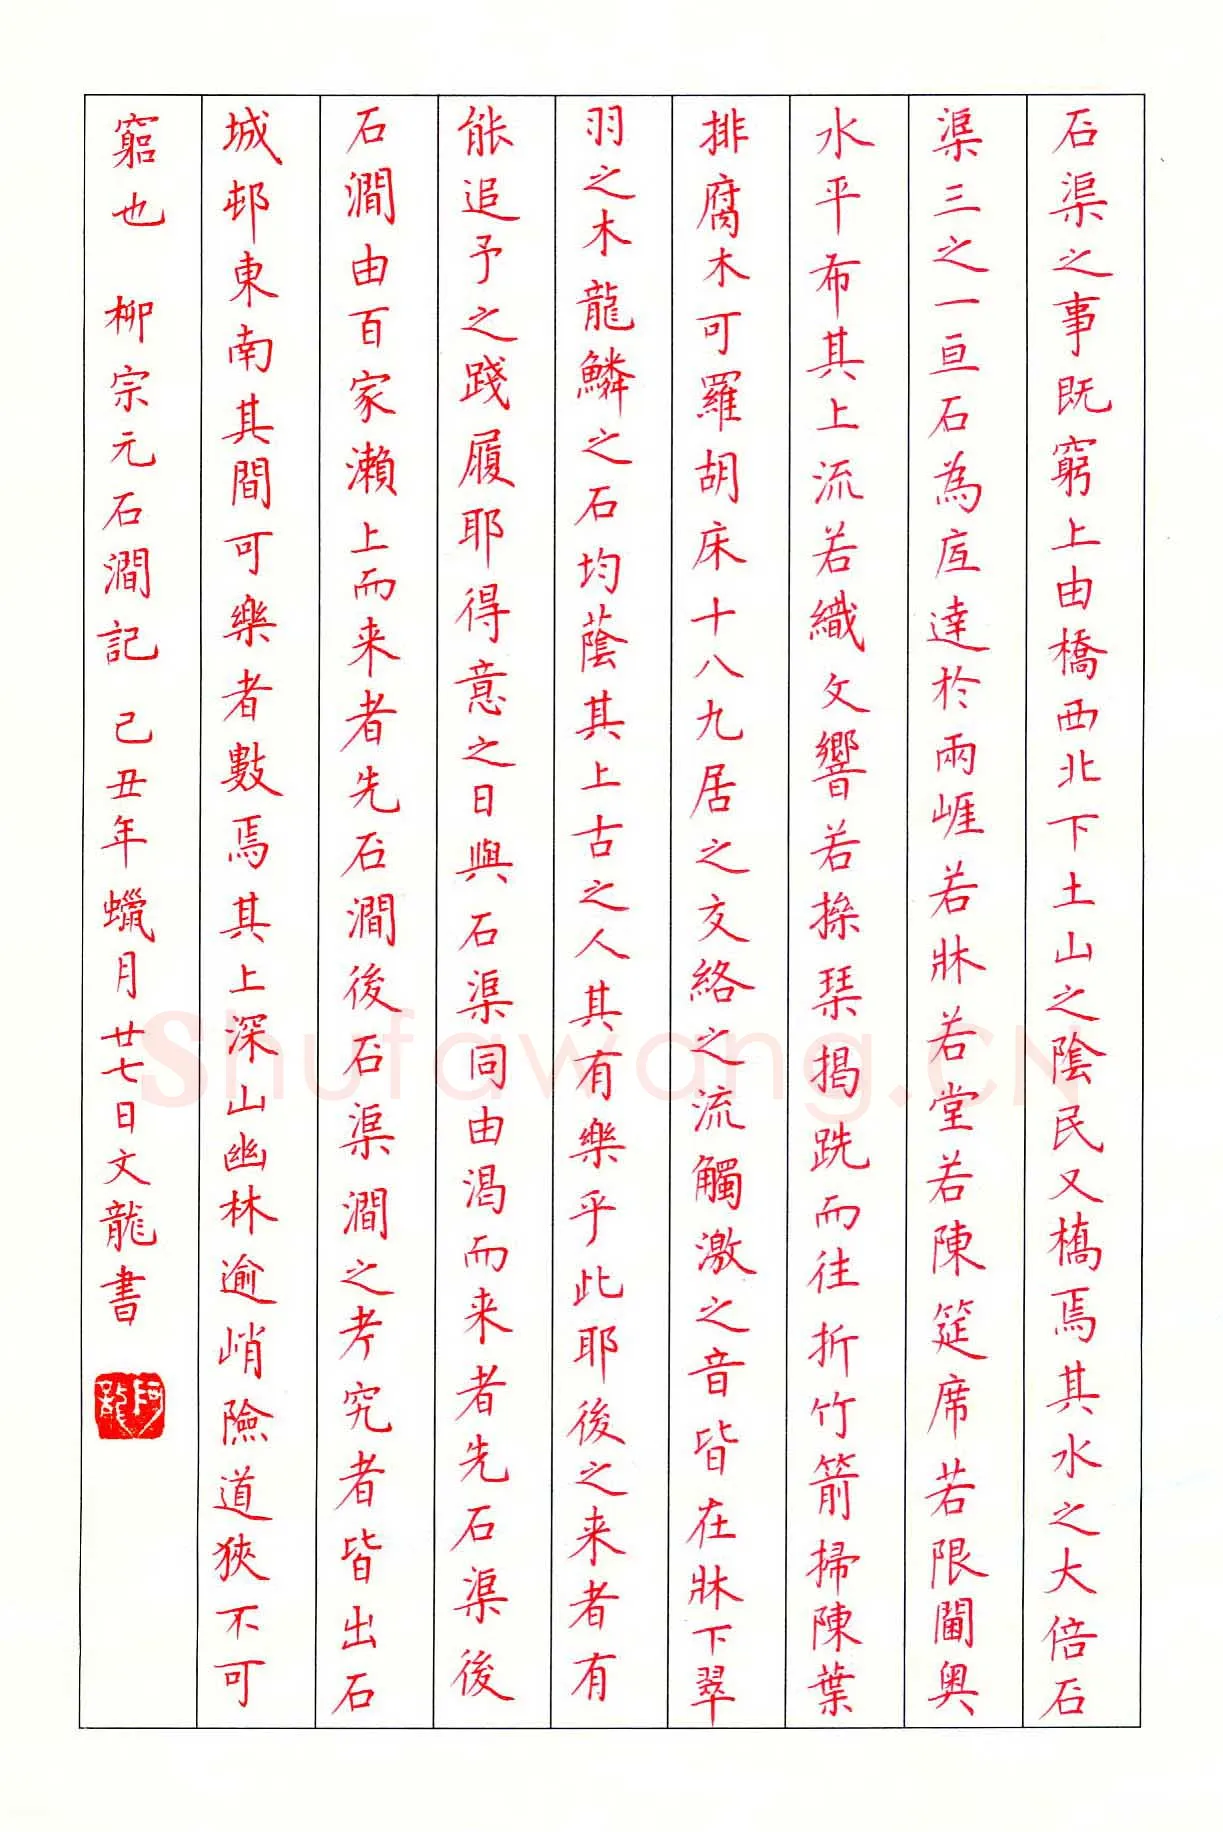 石渠之事既窮上由橋西北下土山之陰民又橋焉其水之大倍石
渠三之一亘石為底達於兩崕若牀若堂若陳筵席若限閫奥
水平布其上流若織文響若操琹揭跣而往折竹箭掃陳葉
排腐木可羅胡床十八九居之交絡之流觸激之音皆在牀下翠
羽之木龍鱗之石均蔭其上古之人其有樂乎此耶後之来者有
能追予之踐履耶得意之日與石渠同由渴而来者先石渠後
石澗由百家瀨上而来者先石澗後石渠澗之考究者皆出石
城邨東南其間可樂者數焉其上深山幽林逾峭險道狹不可
窮也 柳宗元石澗記 己丑年蠟月廿七日文龍書
阿龍
Shufawang.CN